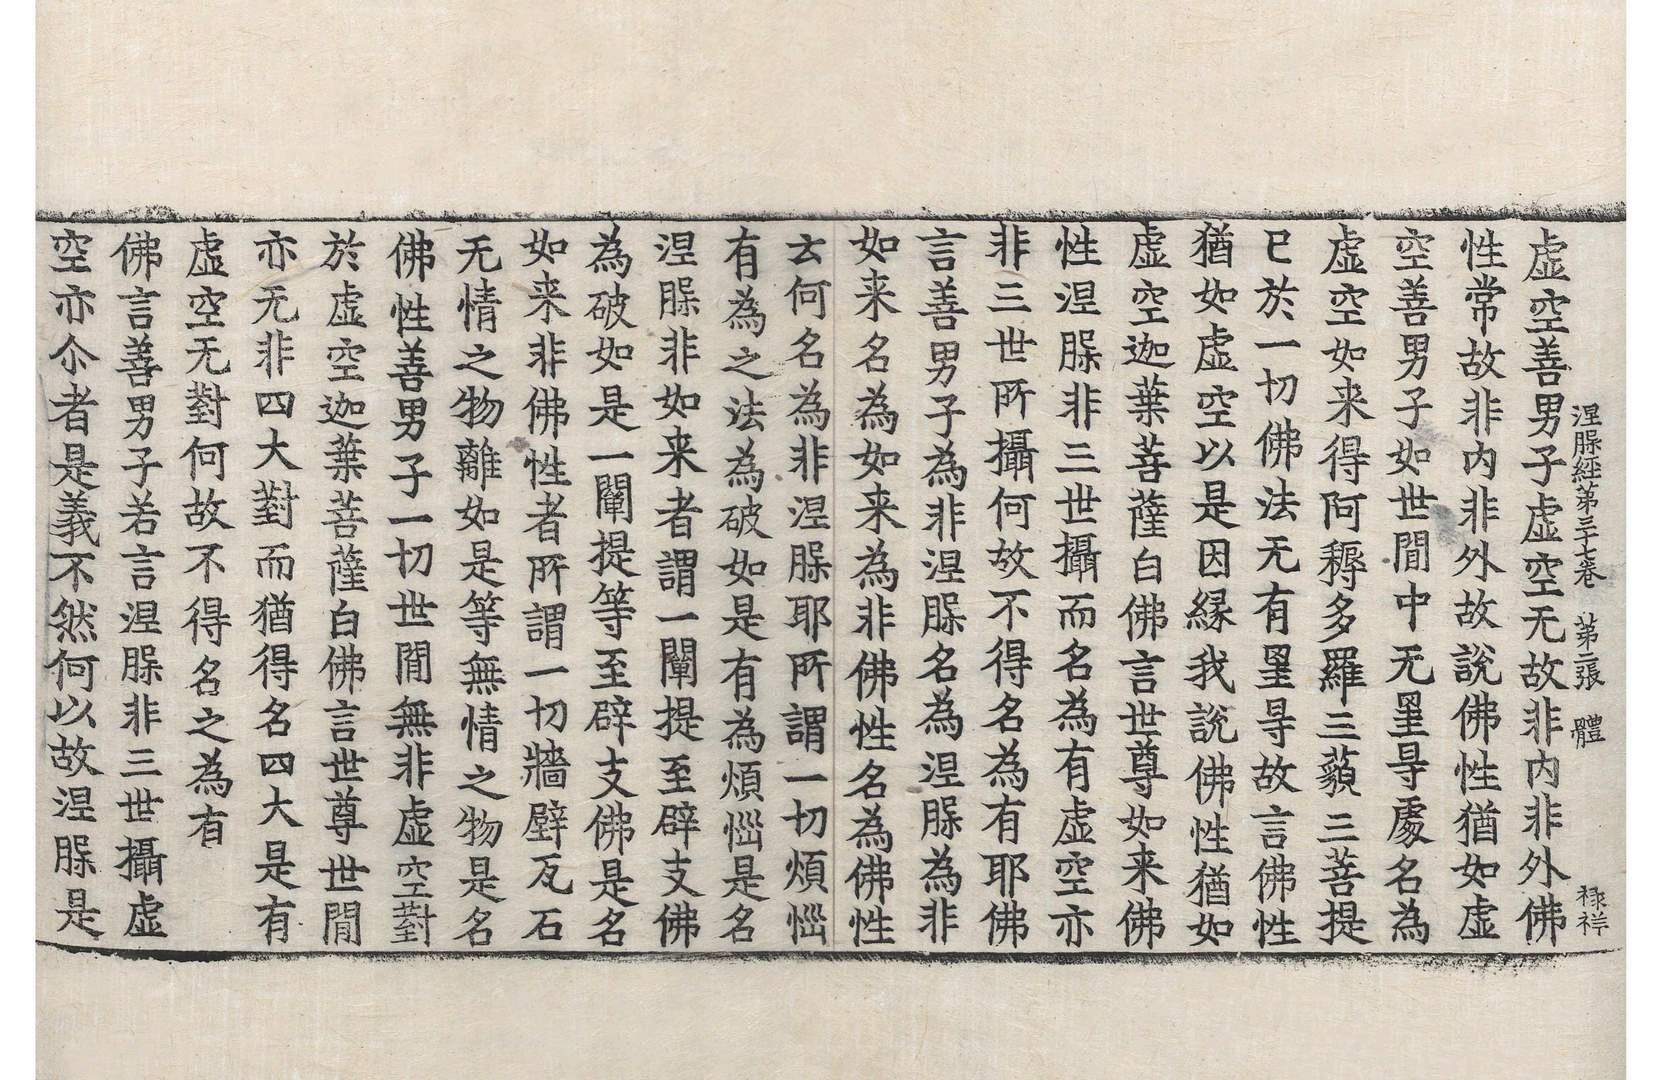 涅槃經第三十七卷　第二張　體　禄祥
虛空善男子虛空无故非內非外佛
性常故非內非外故說佛性猶如虛
空善男子如世閒中无罣㝵處名為
虛空如来得阿耨多羅三藐三菩提
已於一切佛法无有罣㝵故言佛性
猶如虛空以是因縁我說佛性猶如
虛空迦葉菩薩白佛言世尊如来佛
性涅槃非三世攝而名為有虛空亦
非三世所攝何故不得名為有耶佛
言善男子為非涅槃名為涅槃為非
如来名為如来為非佛性名為佛性
云何名為非涅槃耶所謂一切煩惱
有為之法為破如是有為煩惱是名
涅槃非如来者謂一闡提至辟支佛
為破如是一闡提等至辟支佛是名
如来非佛性者所謂一切牆壁瓦石
无情之物離如是等無情之物是名
佛性善男子一切世閒無非虛空對
於虛空迦葉菩薩白佛言世尊世閒
亦无非四大對而猶得名四大是有
虛空无對何故不得名之為有
佛言善男子若言涅槃非三世攝虛
空亦尒者是義不然何以故涅槃是